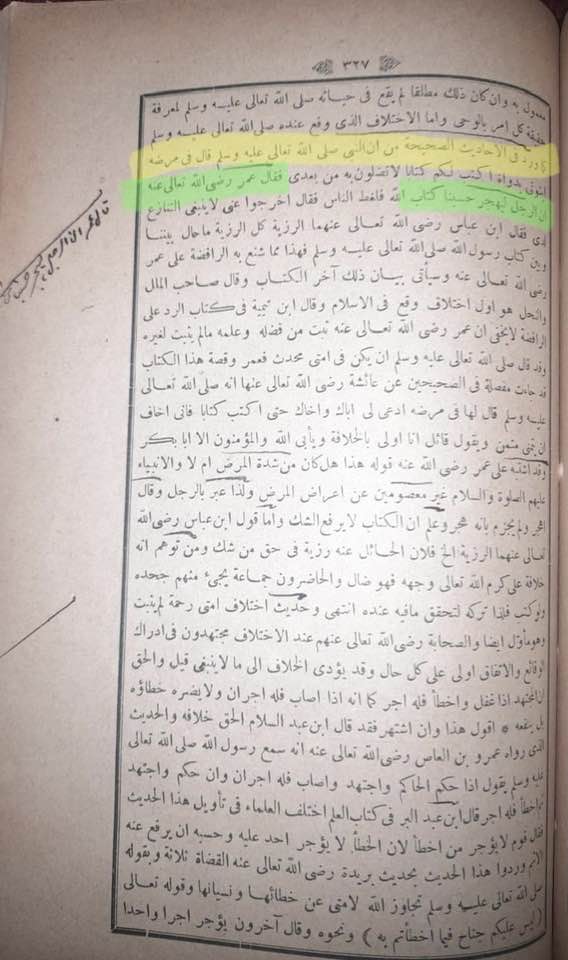 ٣٢٧
معمول به وان كان ذلك مطلقا لم يقع فى حياته صلى الله تعالى عليه وسلم لمعرفة
حقيقة كل امر بالوحى واما الاختلاف الذى وقع عنده صلى الله تعالى عليه وسلم
كما ورد فى الاحاديث الصحيحة من ان النبى صلى الله تعالى عليه وسلم قال فى مرضه
ائتونى بدواة اكتب لكم كتابا لا تضلون به من بعدى فقال عمر رضى الله تعالى عنه
ان الرجل ليهجر حسبنا كتاب الله فلغط الناس فقال اخرجوا عنى لا ينبغى التنازع
لدى فقال ابن عباس رضى الله تعالى عنهما الرزية كل الرزية ما حال بيننا
وبين كتاب رسول الله صلى الله تعالى عليه وسلم فهذا مما شنع به الرافضة على عمر
رضى الله تعالى عنه وسيأتى بيان ذلك آخر الكتاب وقال صاحب الملل
والنحل هو اول اختلاف وقع فى الاسلام وقال ابن تيمية فى كتاب الرد على
الرافضة لا يخفى ان عمر رضى الله تعالى عنه ثبت من فضله وعلمه مالم يثبت لغيره
وقد قال صلى الله تعالى عليه وسلم ان يكن فى امتى محدث فعمر وقصة هذا الكتاب
قد جاءت مفصلة فى الصحيحين عن عائشة رضى الله تعالى عنها انه صلى الله تعالى
عليه وسلم قال لها فى مرضه ادعى لى اباك واخاك حتى اكتب كتابا فانى اخاف
ان يتمنى متمن ويقول قائل انا اولى بالخلافة ويأبى الله والمؤمنون الا ابا بكر
وقد اشتبه على عمر رضى الله عنه قوله هذا هل كان من شدة المرض ام لا والانبياء
عليهم الصلوة والسلام غير معصومين عن اعراض المرض ولذا عبر بالرجل وقال
اهجر ولم يجزم بانه هجر وعلم ان الكتاب لا يرفع الشك واما قول ابن عباس رضى الله
تعالى عنهما الرزية الخ فلان الحائل عنه رزية فى حق من شك ومن توهم انه
خلافة على كرم الله تعالى وجهه فهو ضال والحاضرون جماعة يجىء منهم جحده
ولو كتب فلذا تركه لتحقق مافيه عنده انتهى وحديث اختلاف امتى رحمة لم يثبت
وهو مأول ايضا والصحابة رضى الله تعالى عنهم عند الاختلاف مجتهدون فى ادراك
الوقائع والاتفاق اولى على كل حال وقد يؤدى الخلاف الى ما لا ينبغى قيل والحق
ان المجتهد اذا غفل واخطأ فله اجر كما انه اذا اصاب فله اجران ولا يضره خطاؤه
بل ينفعه * اقول هذا وان اشتهر فقد قال ابن عبد السلام الحق خلافه والحديث
الذى رواه عمرو بن العاص رضى الله تعالى عنه انه سمع رسول الله صلى الله تعالى
عليه وسلم يقول اذا حكم الحاكم واجتهد واصاب فله اجران وان حكم واجتهد
ثم اخطأ فله اجر قال ابن عبد البر فى كتاب العلم اختلف العلماء فى تأويل هذا الحديث
فقال قوم لا يؤجر من اخطأ لان الخطأ لا يؤجر احد عليه وحسبه ان يرفع عنه
الاثم وردوا هذا الحديث بحديث بريدة رضى الله تعالى عنه القضاة ثلاثة وبقوله
صلى الله تعالى عليه وسلم تجاوز الله لامتى عن خطائها ونسيانها وقوله تعالى
( ليس عليكم جناح فيما اخطأتم به ) ونحوه وقال آخرون يؤجر اجرا واحدا
قال عمر ان الرجل